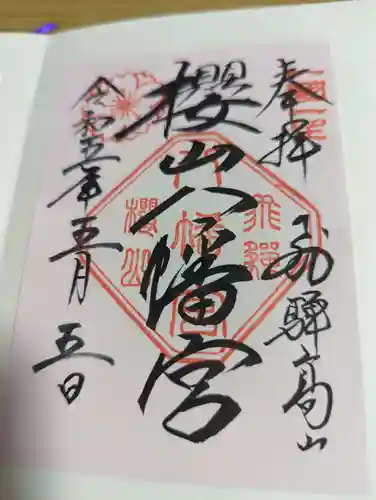 奉拝 飛騨高山
櫻山八幡宮
令和五年五月五日
飛騨
八幡宮
櫻山